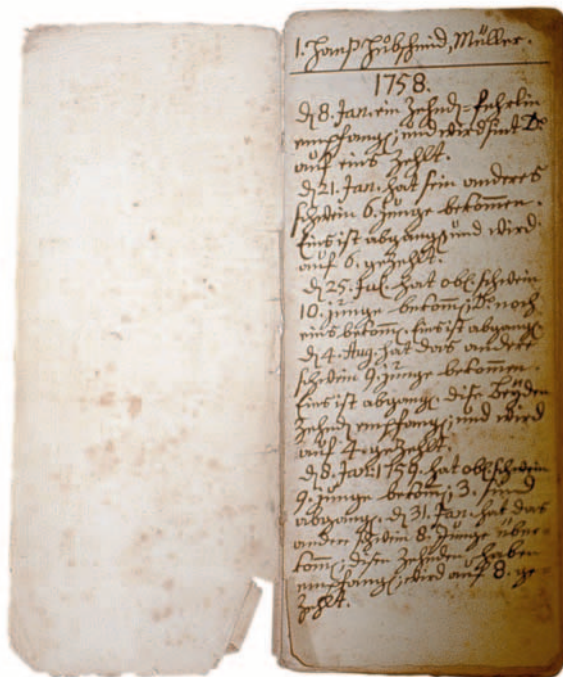 1. Hanß Hübscheid, Müller.
1758.
dẹ 8. Jan. ein Zehndẹ=fehrlin
empfangẹ, und wird sint D°
auf eins zehlt.
dẹ 21. Jan. hat sein anderes
schwein 6. junge bekom̄en.
Eins ist abgangẹ und wird
auf 6. gezehlt.
dẹ 25. Jul. hat obl. schwein
10. junge bekom̄ẹ, noch
eins bekom̄ẹ. Eins ist abgangẹ
dẹ 4. Aug. hat das andere
schwein 9. junge bekom̄en.
Eins ist abgangẹ. dise beyden
Zehndẹ empfangẹ, und wird
auf 4. gezehlt.
dẹ 8. Jan. 1759. hat obl. schwein
9. junge bekom̄ẹ, 3. sind
abgangẹ. dẹ 31. Jan. hat das
andere schwein 8. Junge über-
kom̄ẹ; disen Zehnden haben
empfangẹ, wird auf 8. ge-
zehlt.